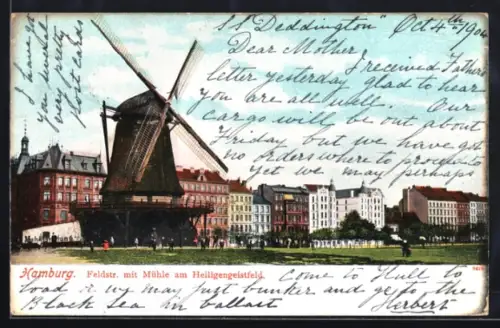 "S S Deddington" Oct 4th 1904
Dear Mother,
I received Fathers
letter yesterday glad to hear
you are all well. Our
cargo will be out about
Friday but we have got
no orders where to proceed to
yet we may perhaps
come to Hull to
load or we may just bunker and go to the
Black Sea in ballast Herbert
I have got
you several
very pretty
post cards
Hamburg. Feldstr. mit Mühle am Heiligengeistfeld.